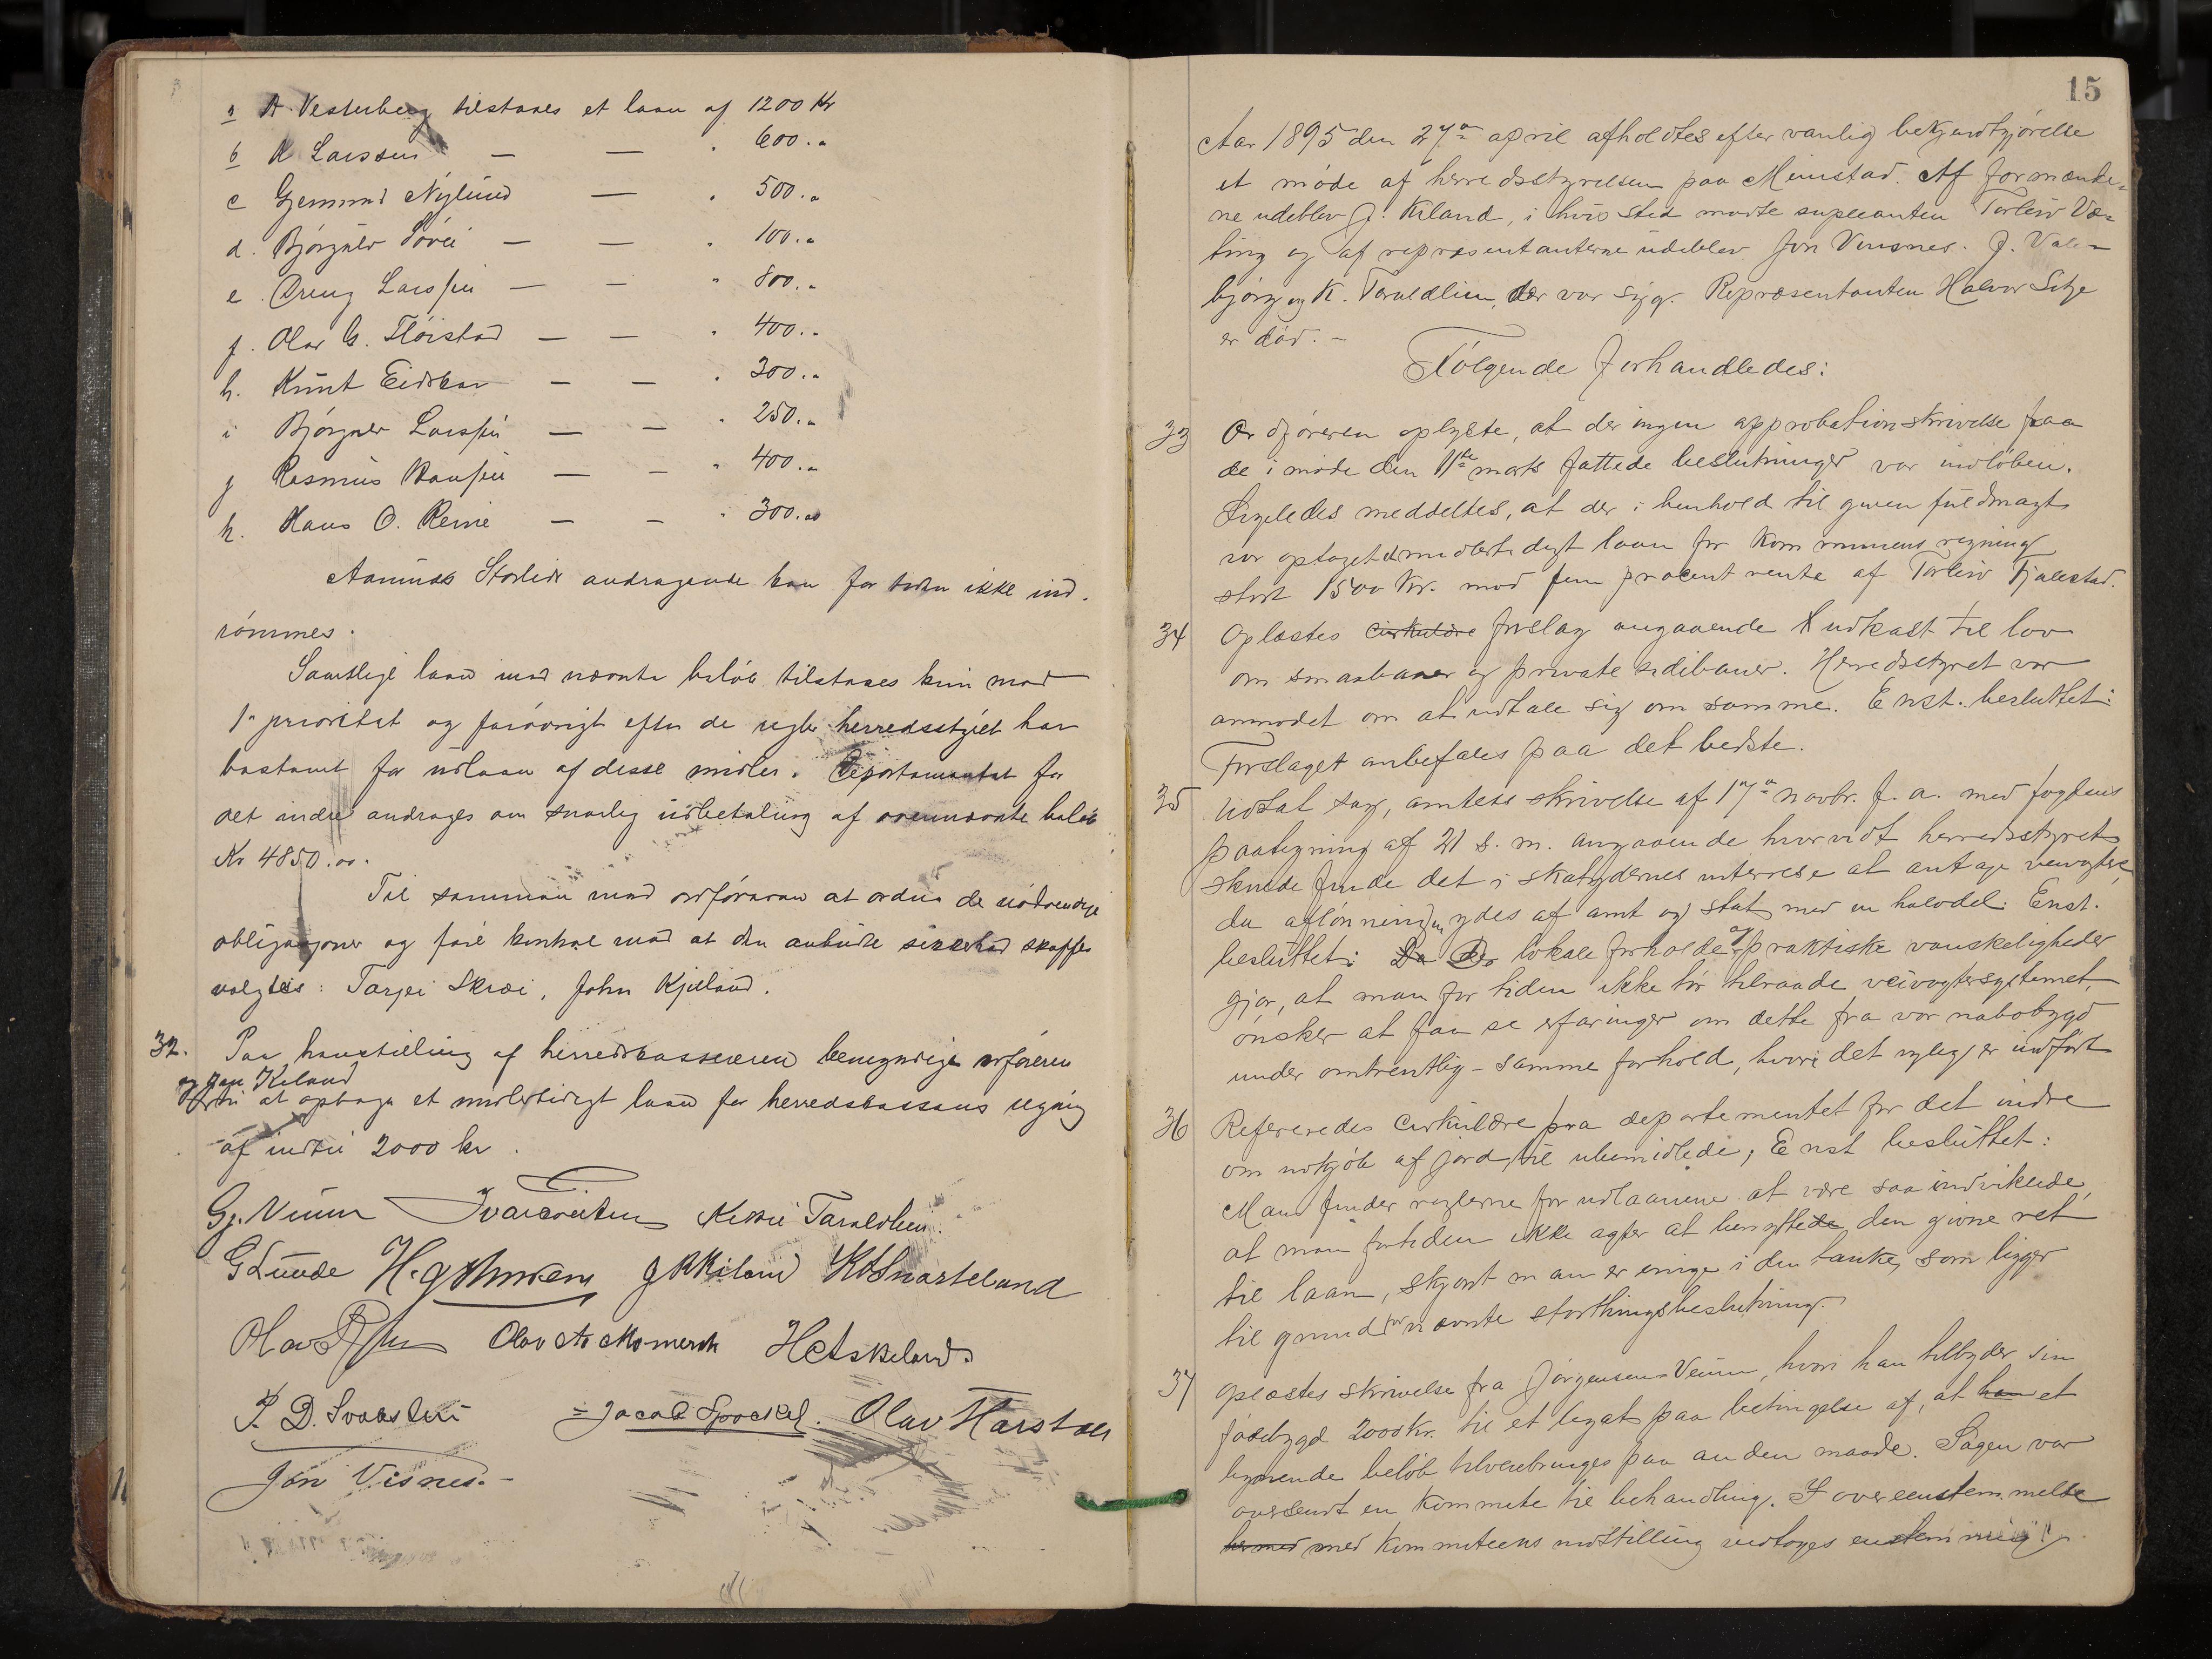 a A. Vesterberg tilstaaes et laan af 1200 Kr
b K Larssen — — " 600."
c Gjemund Nylund — " 500."
d. Bjørgulv — — " 100."
e. Larssen — — " 800."
f. Olav G. Fløistad — — " 400."
h. Knut Eidsaa — — " 300."
i Bjørgulv Larssen — — " 250."
j Rasmus — — " 400."
k. Hans O. Reine — — " 300.00
Aanund andragende kan for tiden ikke ind-
rømmes.
Samtlige laan med nævnte beløb tilstaaes kun mod
1ste prioritet og forøvrigt efter de regler herredsstyret har
bestemt for udlaan af disse midler. Departementet for
det indre andrages om snarlig udbetaling af ovennævnte beløb
Kr 4850.00.
Til sammen med ordføreren at ordne de nødvendige
obligasjoner og føre kontrol med at den anbudte sikkerhed skaffes
valgtes: Tarjei Skrei, John Kjiland.
32. Paa henstilling af herredskassereren bemyndiges ordføreren
og Jon Kiland
til at optage et midlertidigt laan for herredskassens regning
af indtil 2000 kr.
Gj. Veum Taraldlien
G Lunde H. J K Kiland K O Svarteland
Olav Olav A. Momerak H Askeland.
T. D. Jacob Olav Harstad
Jon Visnes.-
15
Aar 1895 den 27de april afholdtes efter vanlig bekjendtgjørelse
et møde af herredsstyrelsen paa Meinstad. Af formænde-
ne udeblev J. Kiland, i hvis sted mødte supleanten Torleiv Væ-
ting og af repræsentanterne udeblev Jon Visnes. J. Vale-
bjørg og K. Taraldlien, der var syg. Repræsentanten Halvor Sitje
er død. -
Følgende forhandledes:
33 Ordføreren oplyste, at der ingen approbationskrivelse paa
de i møde den 11te marts fattede beslutninger var indløben.
Ligeledes meddeltes, at der i henhold til given fuldmagt
var optaget et midlertidigt laan for kommunens regning
stort 1500 kr. mod fem procent rente af Torleiv Fjalestad.
34 Oplæstes cirkulære forslag angaaende udkast til lov
om smaabaner og private sidebaner. Herredsstyret var
anmodet om at udtale sig om samme. Enst. besluttet:
Forslaget anbefales paa det bedste.
35 Udsat sag, amtets skrivelse af 17de novbr. f. a. med fogdens
paategning af 21 s. m. angaaende hvorvidt herredsstyret
skulde finde det i skatydernes interesse at antage veivogtere,
da aflønningen ydes af amt og stat med en halvdel. Enst.
besluttet: Da De lokale forholde og praktiske vanskeligheder
gjør, at man for tiden ikke tør tilraade veivogtersystemet,
ønsker at faa se erfaringer om dette fra vor nabobygd
under omtrentlig - samme forhold, hvori det nylig er indført
36 Refereredes cirkulære fra departementet for det indre
om indkjøb af jord til ubemidlede; Enst besluttet:
Man finder reglerne for udlaanene at være saa indviklede,
at man fortiden ikke agter at benyttede den givne ret
til laan, skjønt man er enige i den tanke, som ligger
til grund for nævnte storthingsbeslutning.
37 Oplæstes skrivelse fra Jørgensen Veum, hvori han tilbyder sin
fødebygd 2000 kr. til et legat paa betingelse af, at han et
lignende beløb tilveiebringes paa anden maade. Sagen var
oversendt en komite til behandling. I overeenstemmelse
hermed med kommiteens indstilling vedtoges enstemmig